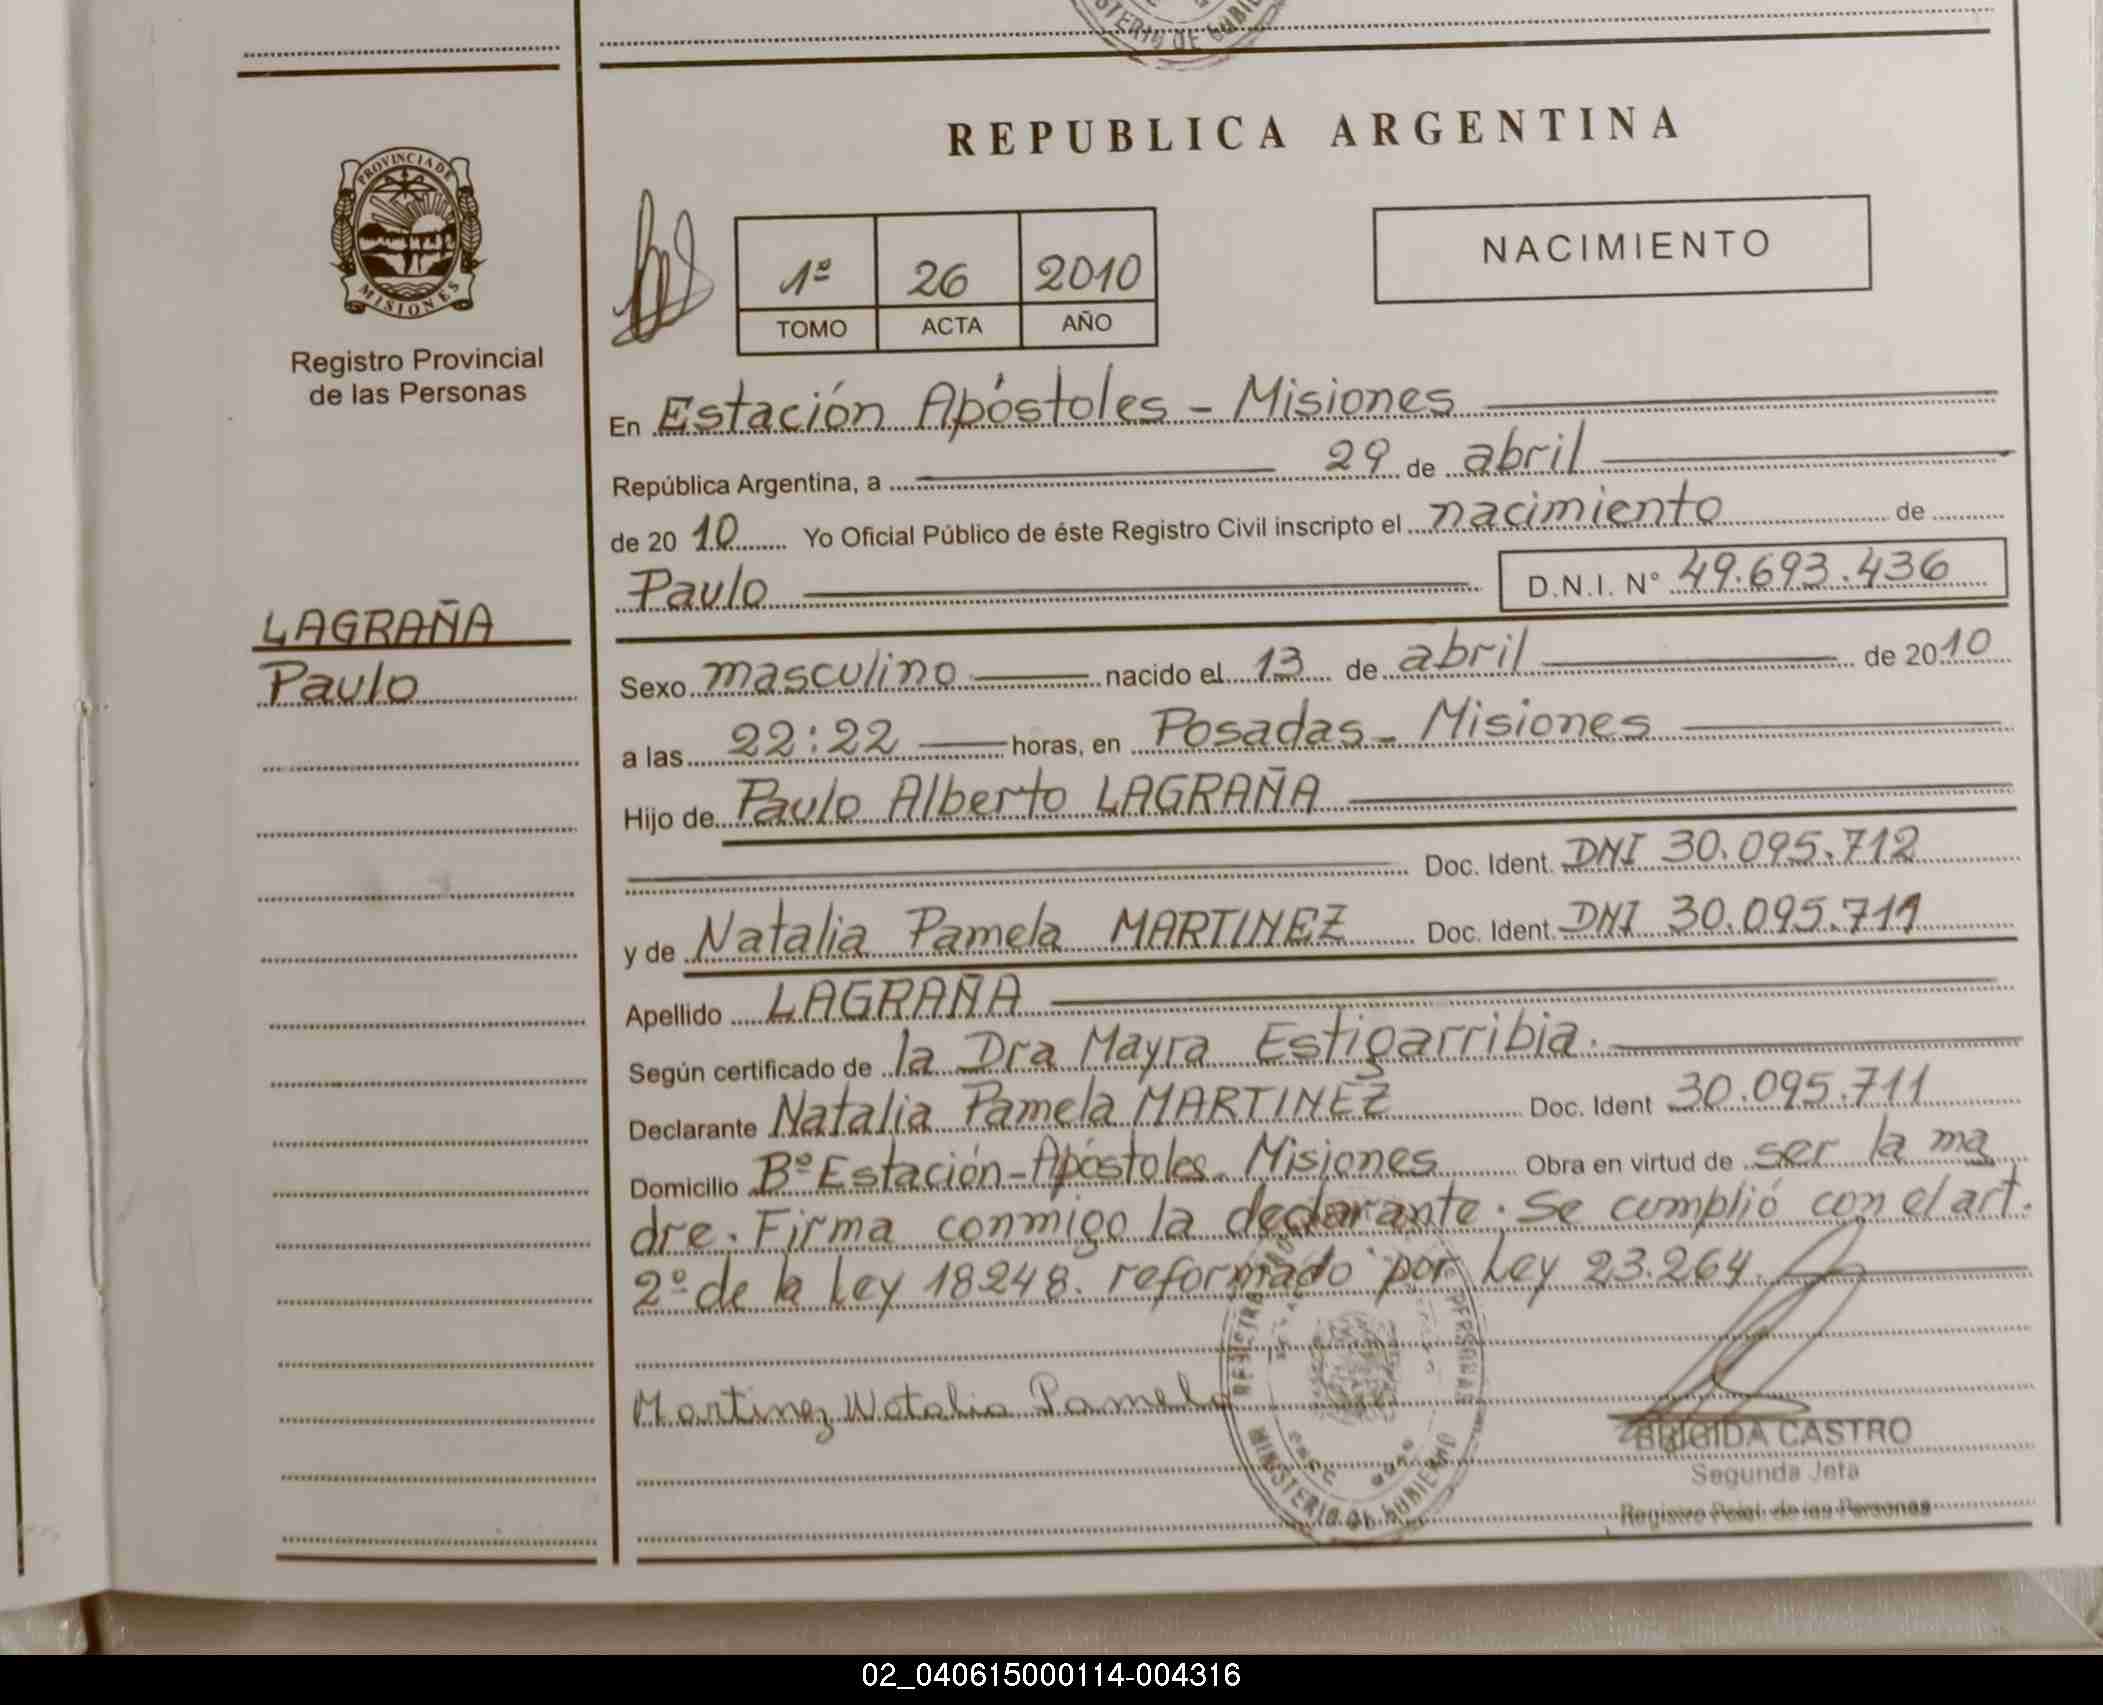 STERIO DE GOBIE
REPUBLICA ARGENTINA
PROVINCIA DE
MISIONES
Registro Provincial
de las Personas
1º 26 2010
TOMO ACTA AÑO
NACIMIENTO
En Estación Apóstoles - Misiones
República Argentina, a 29 de abril
de 20 10 Yo Oficial Público de éste Registro Civil inscripto el nacimiento de
Paulo D.N.I. N° 49.693.436
LAGRAÑA
Paulo
Sexo masculino nacido el 13 de abril de 2010
a las 22:22 horas, en Posadas - Misiones
Hijo de Paulo Alberto LAGRAÑA
Doc. Ident. DNI 30.095.712
y de Natalia Pamela MARTINEZ Doc. Ident. DNI 30.095.711
Apellido LAGRAÑA
Según certificado de la Dra Mayra Estigarribia.
Declarante Natalia Pamela MARTINEZ Doc. Ident 30.095.711
Domicilio Bº Estación - Apóstoles - Misiones Obra en virtud de ser la ma
dre. Firma conmigo la declarante. Se cumplió con el art.
2º de la Ley 18248. reformado por Ley 23.264.
Martinez Natalia Pamela
MINISTERIO DE GOBIERNO
BRIGIDA CASTRO
Segunda Jefa
Registro Pcial. de las Personas
02_040615000114-004316